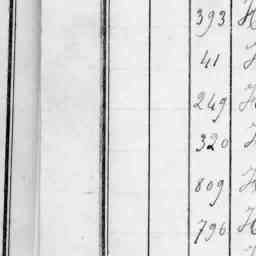 393 H
41 H
249 H
320 H
809 H
796 H